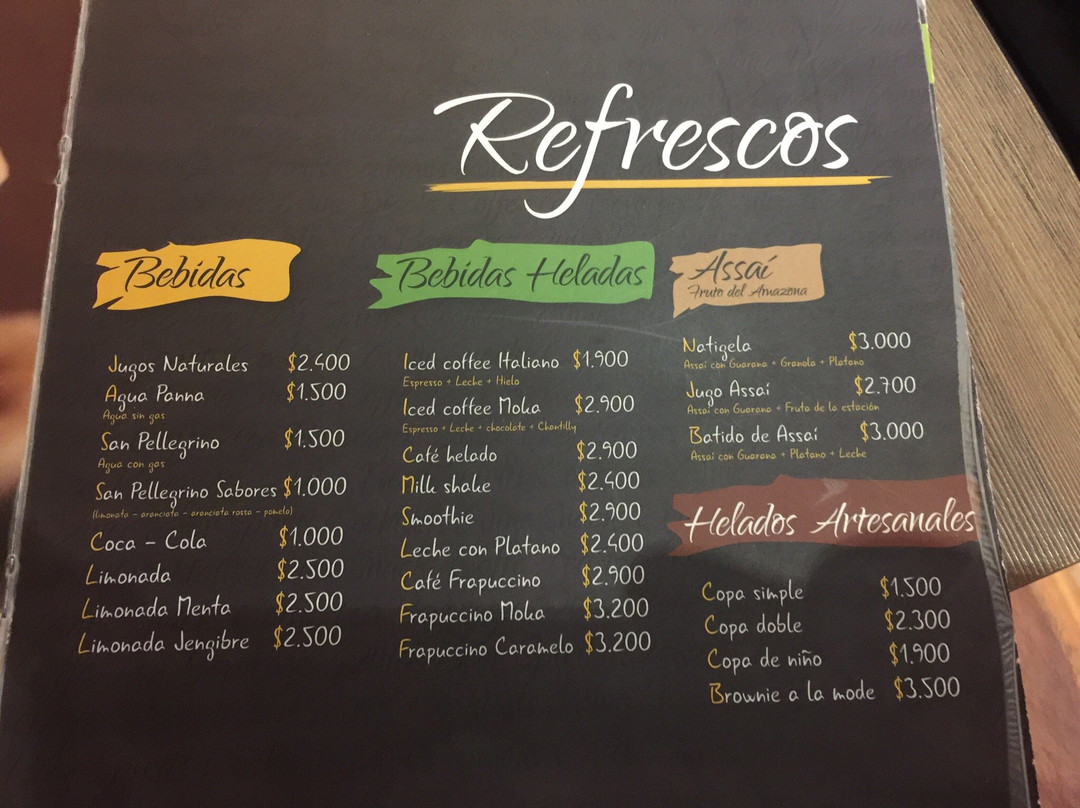 Refrescos
Bebidas
Jugos Naturales $2.400
Agua Panna $1.500
Agua sin gas
San Pellegrino $1.500
Agua con gas
San Pellegrino Sabores $1.000
(limonata - aranciata - aranciata rossa - pomelo)
Coca - Cola $1.000
Limonada $2.500
Limonada Menta $2.500
Limonada Jengibre $2.500
Bebidas Heladas
Iced coffee Italiano $1.900
Espresso + Leche + Hielo
Iced coffee Moka $2.900
Espresso + Leche + chocolate + Chantilly
Café helado $2.900
Milk shake $2.400
Smoothie $2.900
Leche con Platano $2.400
Café Frapuccino $2.900
Frapuccino Moka $3.200
Frapuccino Caramelo $3.200
Assaí
Fruto del Amazona
Natigela $3.000
Assaí con Guarana + Granola + Platano
Jugo Assaí $2.700
Assaí con Guarana + Fruta de la estación
Batido de Assaí $3.000
Assaí con Guarana + Platano + Leche
Helados Artesanales
Copa simple $1.500
Copa doble $2.300
Copa de niño $1.900
Brownie a la mode $3.500